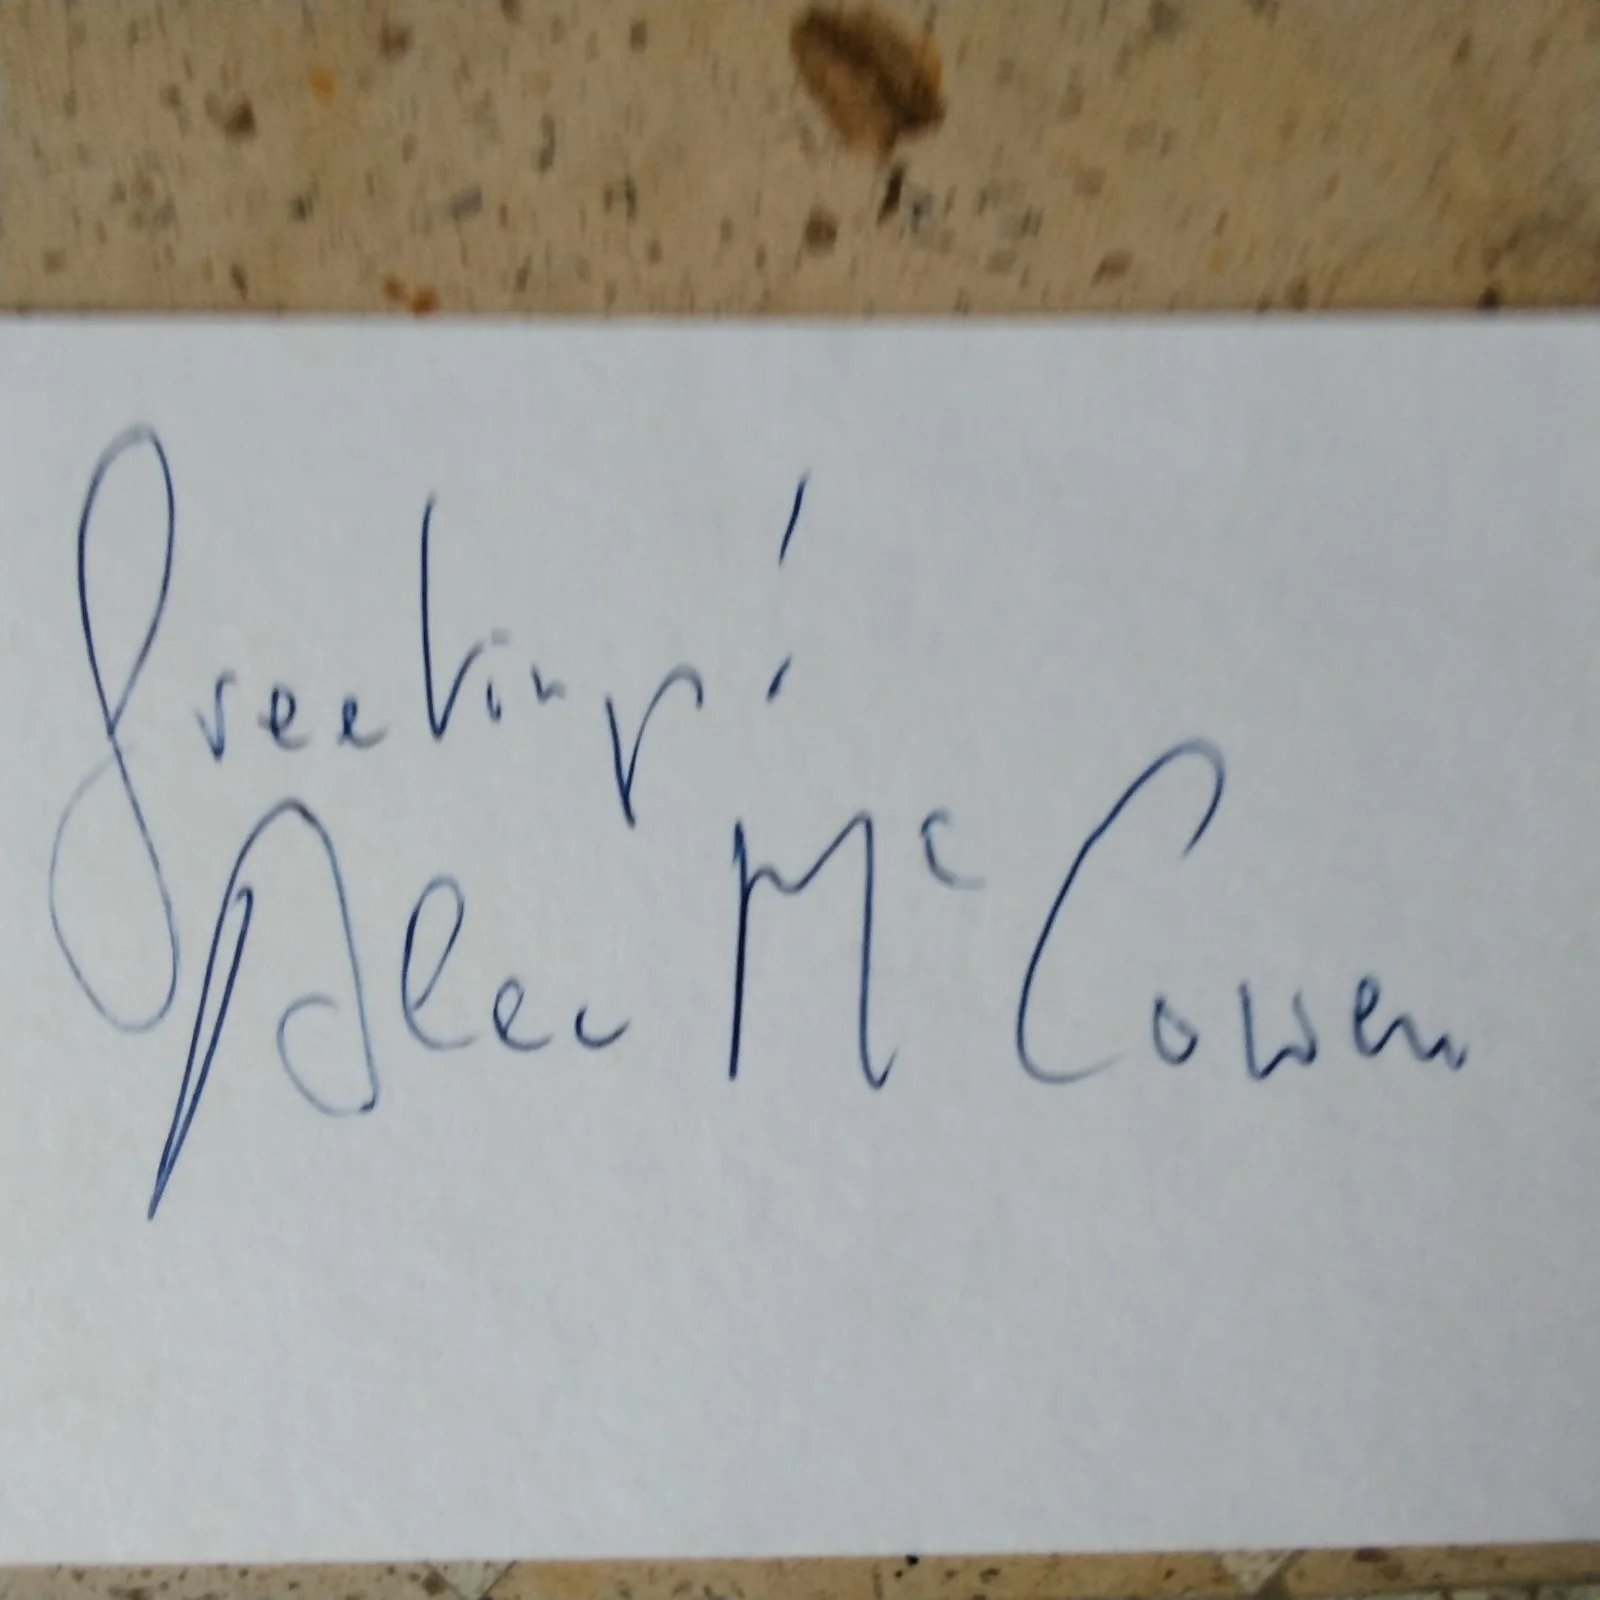 Greetings!
Alec McCowen